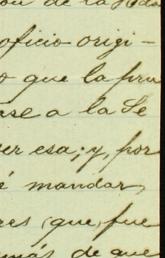 de la
oficio origi-
que la pru
ase a la Se
er esa; y, por
é mandar,
res (que, fue
más de que